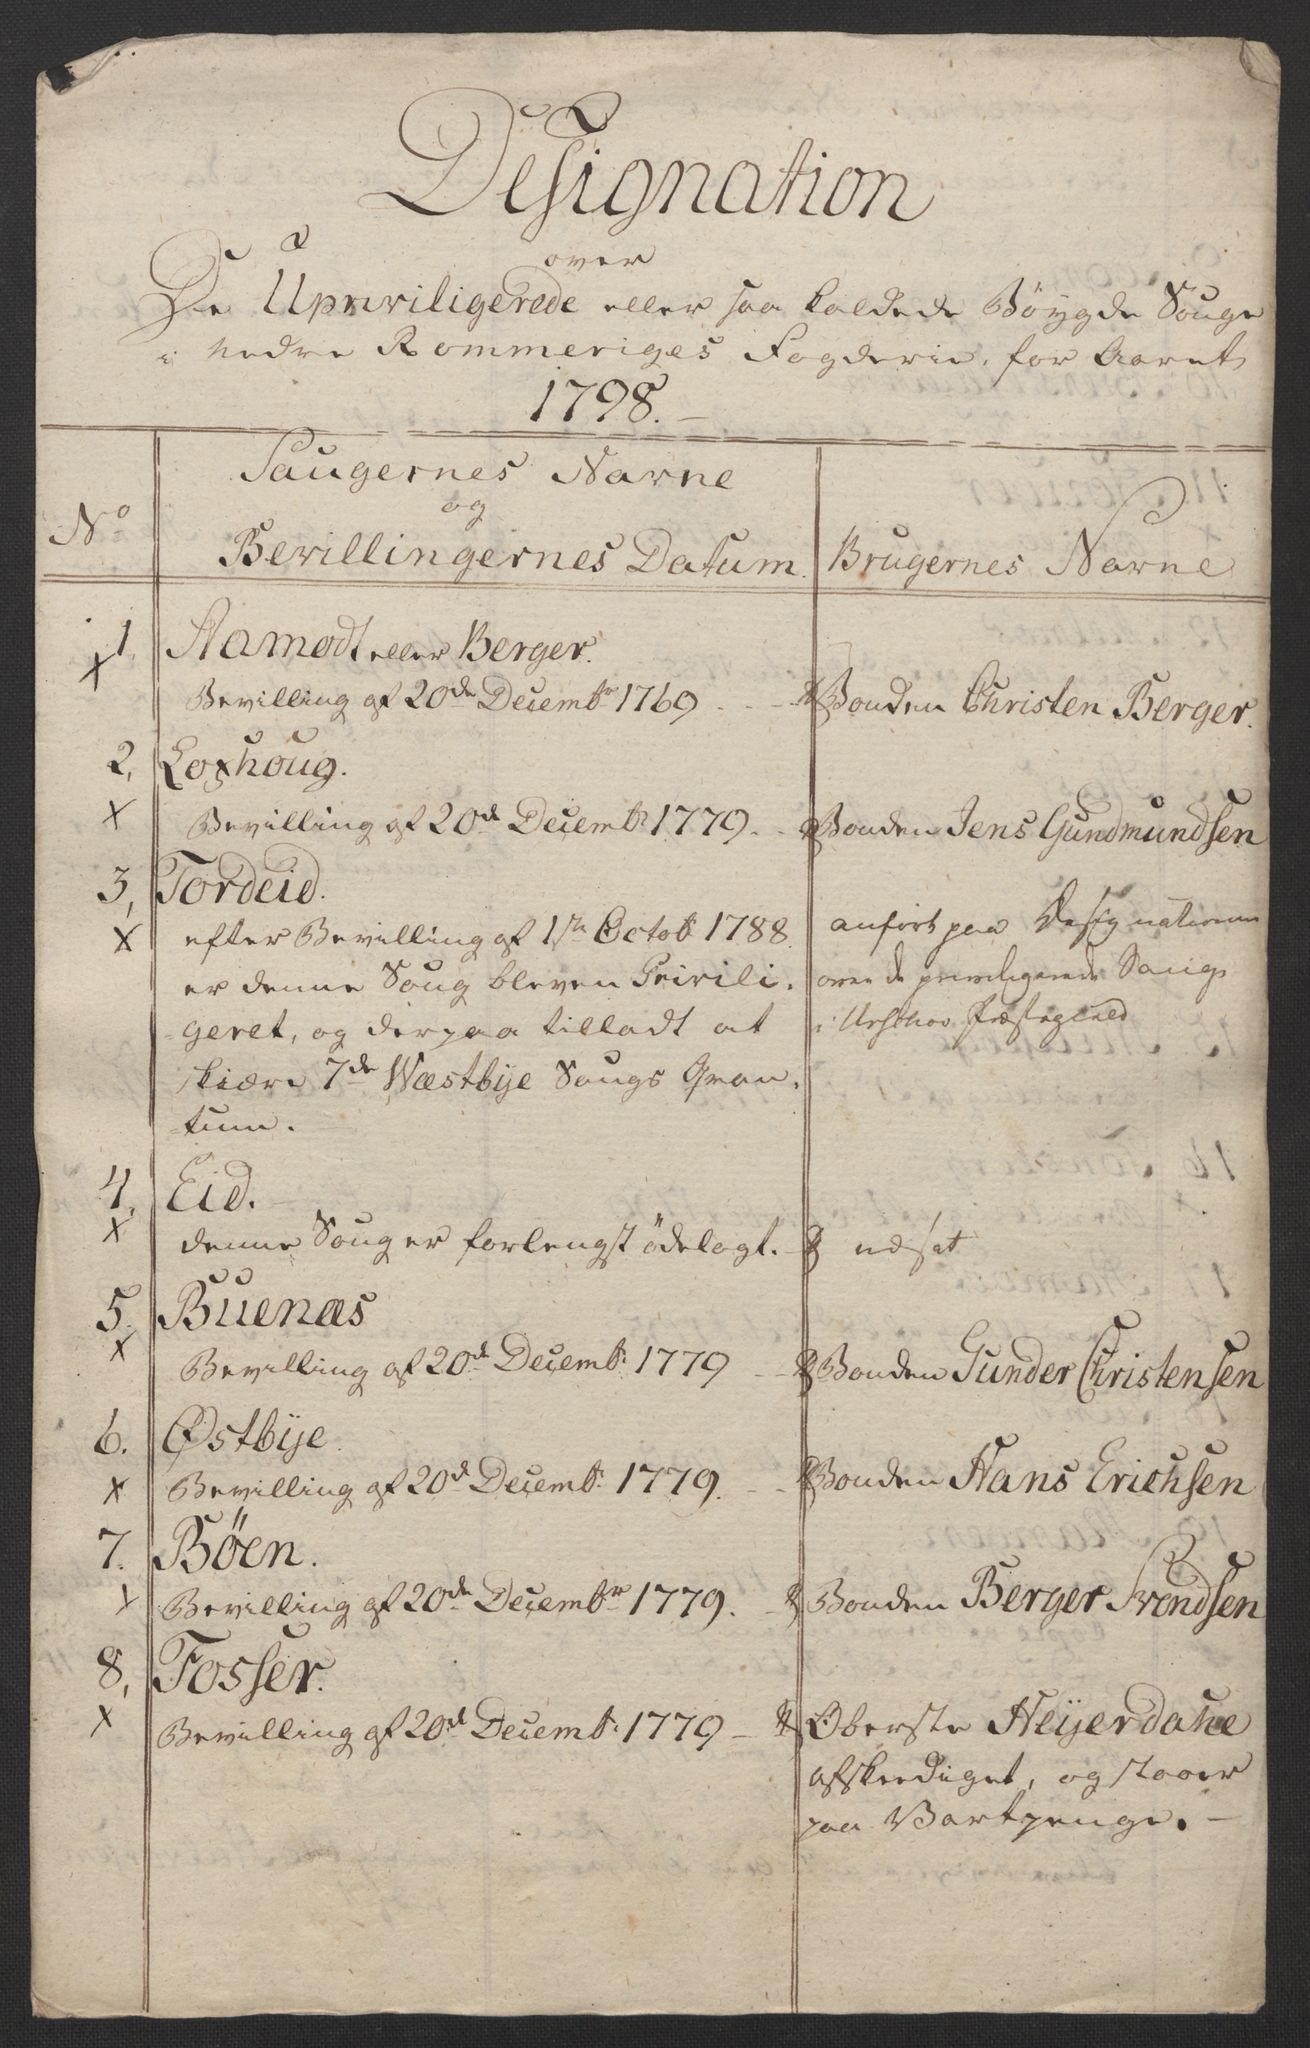 Designation
over
De Upriviligerede eller saa kaldede Böygde Sauge
i Nedre Rommeriges Fogderie, for Aaret
1798.
Saugernes Navne
og
No Bevillingernes Datum Brugernes Navne
1, Aamodt eller Berger.
x Bevilling af 20de Decembr 1769 Bonden Christen Berger.
2, Loxhoug.
x Bevilling af 20de Decembr 1779. Bonden Jens Gundmundsen
3, Tordeid.
x efter Bevilling af 1ste Octob: 1788 anfört paa Designationen
er denne Saug bleven Privili- over de priviligerede Saug
geret, og derpaa tilladt at i Urschou Præstegield
skiære 7de Wæstbye Saugs Qvan-
tum.
4, Eid.
x denne Saug er forlengst ödelagt. udsat
5. Buenæs
x Bevilling af 20de Decemb: 1779 Bonden Gunder Christensen
6. Østbye
x Bevilling af 20de Decemb: 1779. Bonden Hans Erichsen
7. Bøen.
x Bevilling af 20de Decembr 1779. Bonden Berger Svendsen
8, Fosser.
x Bevilling af 20de Decemb: 1779 Oberste Heyerdahl
afskediget, og staaer
paa Vartpenge.